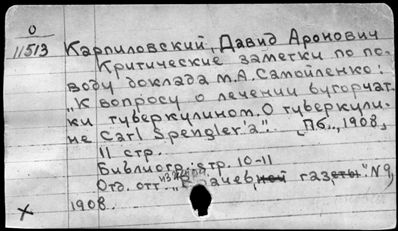 0
11513
Карпиловский, Давид Аронович
Критические заметки по по-
воду доклада М.А. Самойленко:
"К вопросу о лечении бугорчат-
ки туберкулином. О туберкули-
не Carl Spengler'a". [Пб., 1908,
11 стр.
Библиогр.: стр. 10-11
Отд. отт. из газеты." N 9,
1908.
X